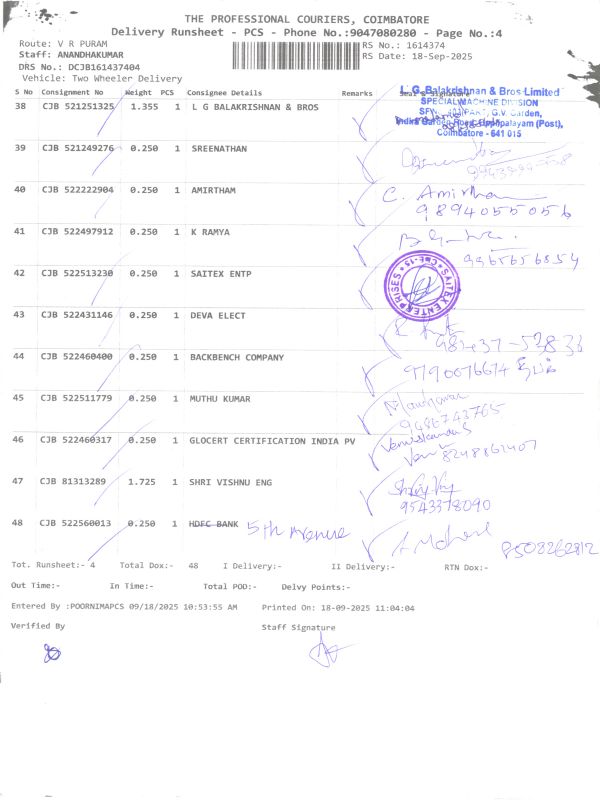 THE PROFESSIONAL COURIERS, COIMBATORE
Delivery Runsheet - PCS - Phone No.:9047080280 - Page No.:4
Route: V R PURAM
RS No.: 1614374
Staff: ANANDHAKUMAR
RS Date: 18-Sep-2025
DRS No.: DCJB161437404
Vehicle: Two Wheeler Delivery
S No Consignment No Weight PCS Consignee Details Remarks Seal & Signature
L.G. Balakrishnan & Bros Limited
SPECIAL MACHINE DIVISION
G.V. Garden,
(Post),
Coimbatore - 641 015
38 CJB 521251325 1.355 1 L G BALAKRISHNAN & BROS
39 CJB 521249276 0.250 1 SREENATHAN
40 CJB 522222904 0.250 1 AMIRTHAM
C. Amirtham
9894055056
41 CJB 522497912 0.250 1 K RAMYA
9965656854
42 CJB 522513230 0.250 1 SAITEX ENTP
SAITEX ENTERPRISES
CBE-15
43 CJB 522431146 0.250 1 DEVA ELECT
44 CJB 522460400 0.250 1 BACKBENCH COMPANY
9790076674
45 CJB 522511779 0.250 1 MUTHU KUMAR
9486743765
46 CJB 522460317 0.250 1 GLOCERT CERTIFICATION INDIA PV
8248862407
47 CJB 81313289 1.725 1 SHRI VISHNU ENG
9543378090
48 CJB 522560013 0.250 1 HDFC BANK 5th Avenue
8508262812
Tot. Runsheet:- 4 Total Dox:- 48 I Delivery:- II Delivery:- RTN Dox:-
Out Time:- In Time:- Total POD:- Delvy Points:-
Entered By :POORNIMAPCS 09/18/2025 10:53:55 AM Printed On: 18-09-2025 11:04:04
Verified By Staff Signature